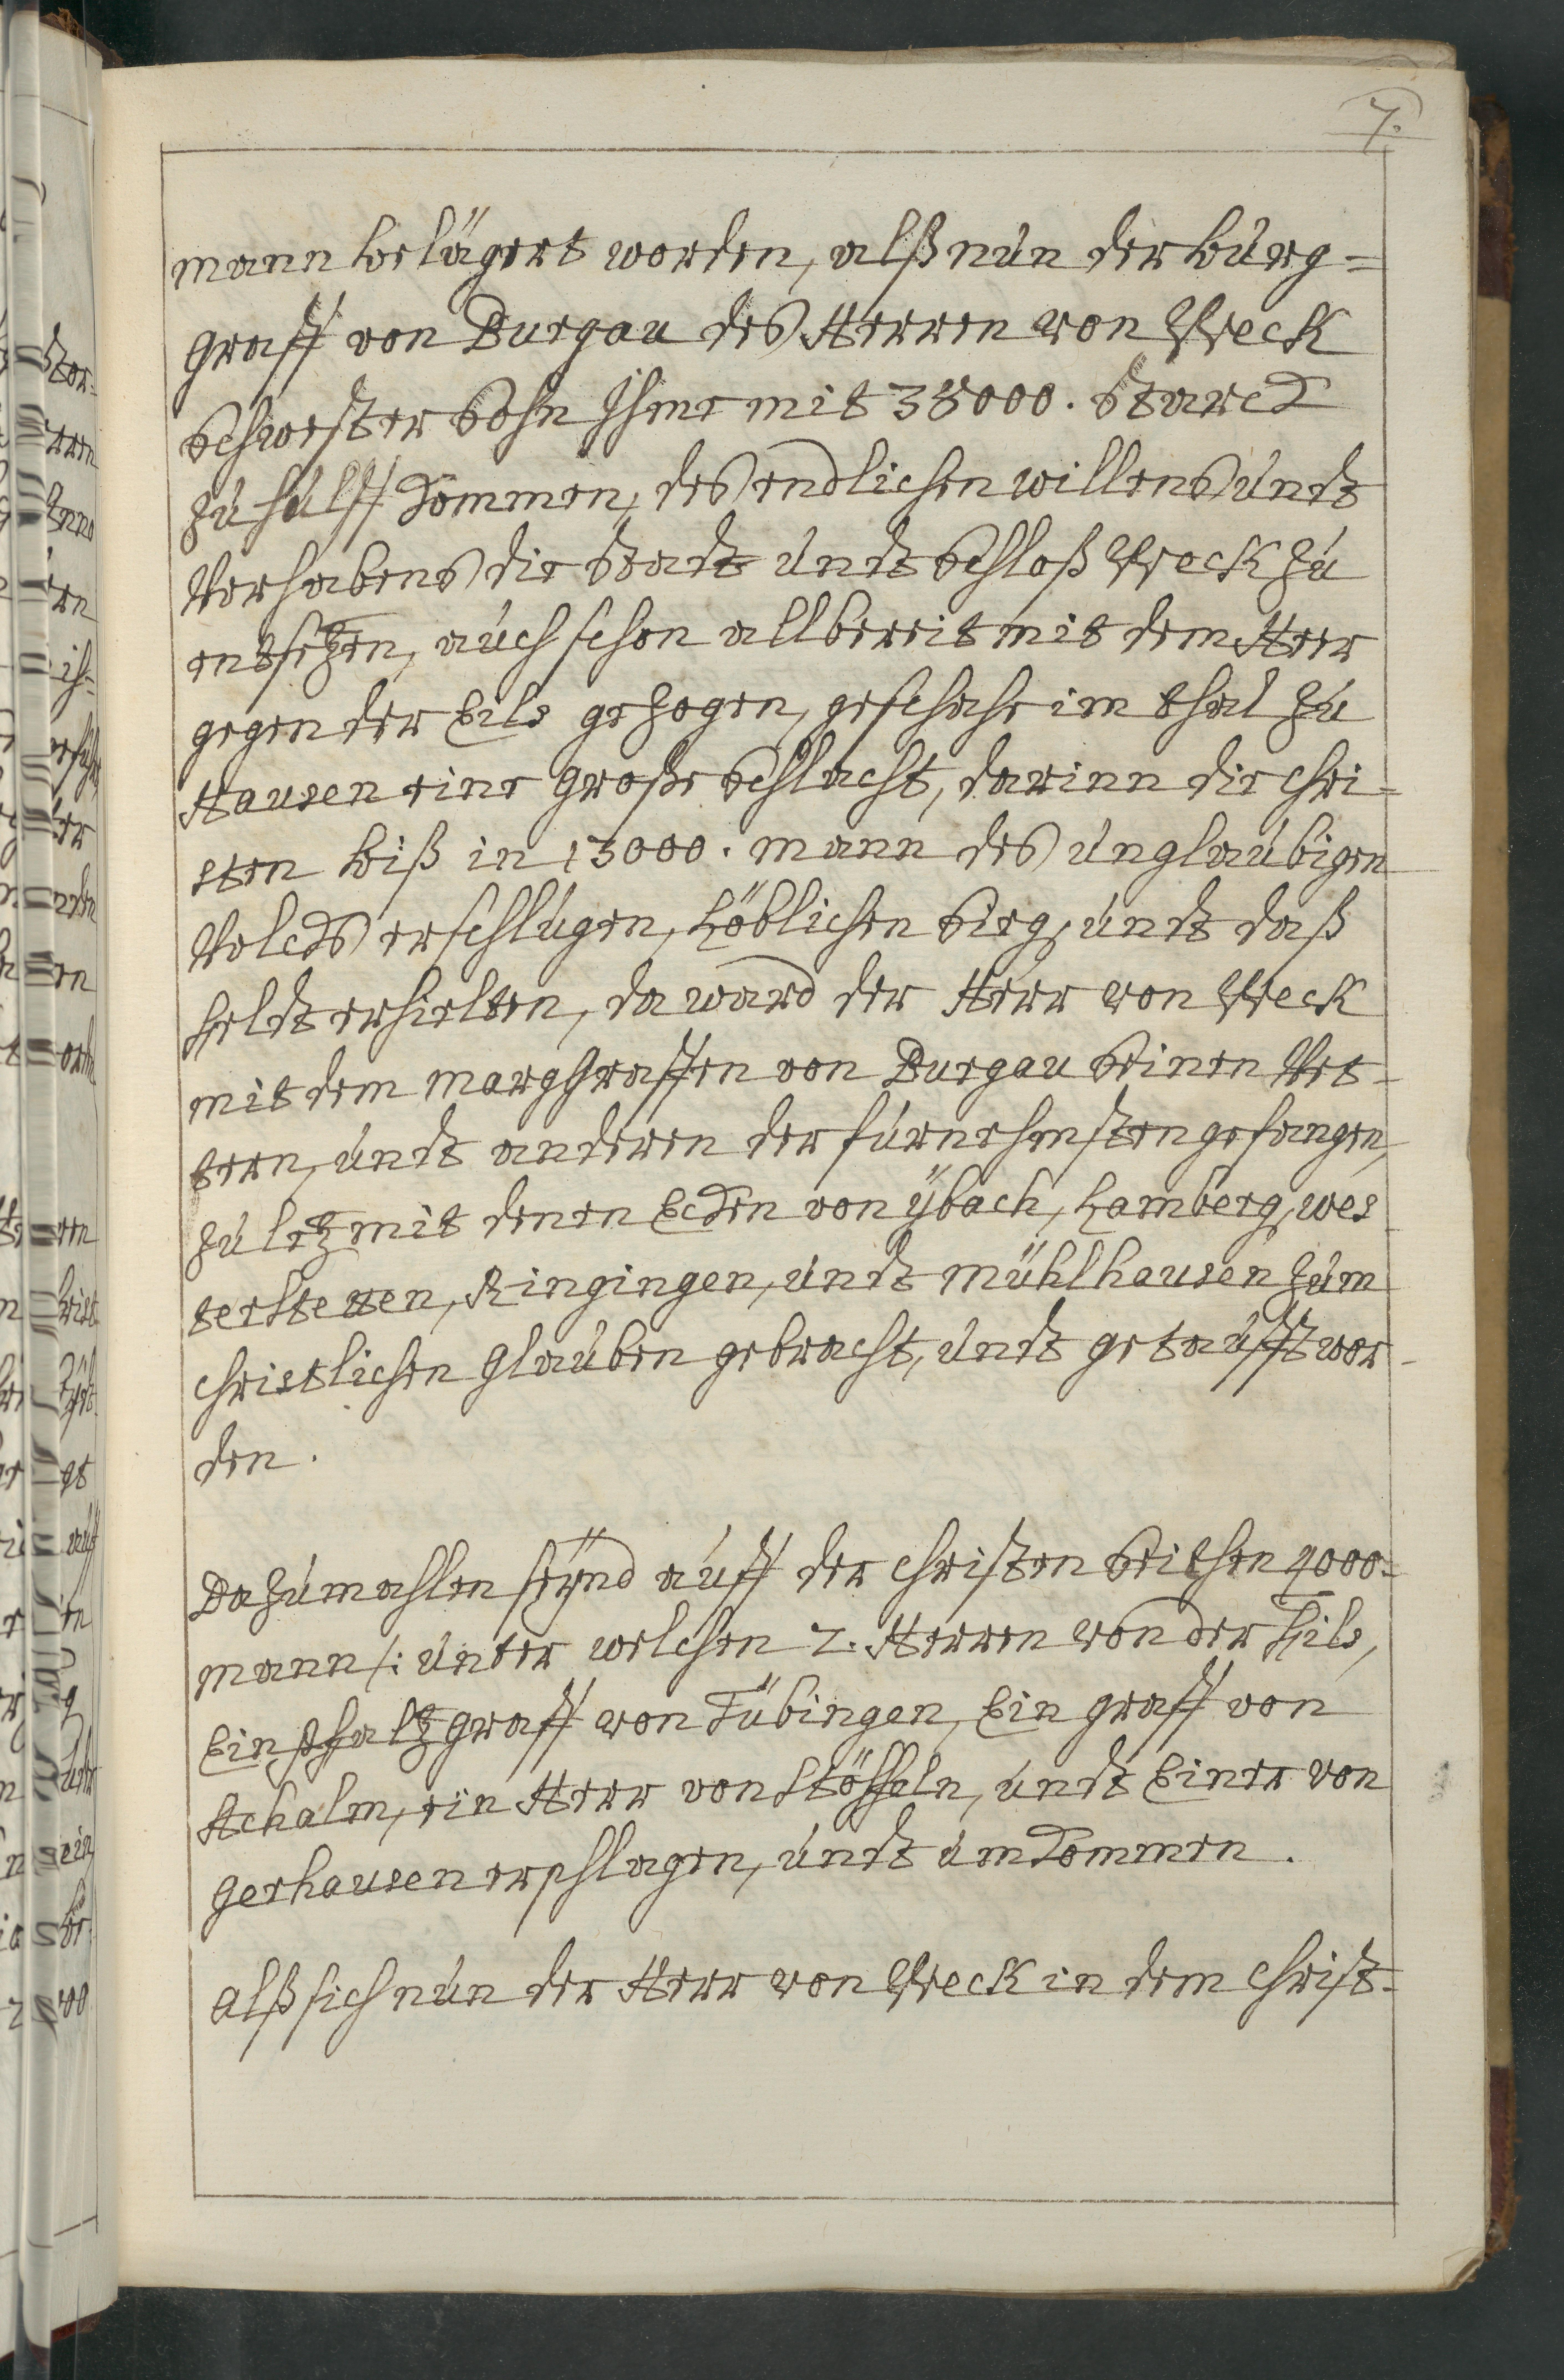 7.
mann belägert worden, alß nun der burg=
graff von Burgau des Herren von Teck
Schwester Sohn Ihme mit 38000. Starck
zu hülff kommen, des endlichen willens undt
Vorhabens die Stadt undt Schloß Teck zu
entsetzen, auch schon allbereit mit dem Heer
gegen der Eils gezogen, geschahe im thal zu
Hausen eine große Schlacht, darinn die chri=
sten biß in 13000. mann des unglaubigen
Volcks erschlugen, Löblichen Sieg, undt daß
Feldt erhielten, da ward der Herr von Teck
mit dem marggraffen von Burgau Seinen Vet=
tern, undt anderen der fürnehmsten gefangen,
zuletz mit denen Ecken von ÿbach, Lamberg, wes
terstetten, Ringingen, undt Mühlhausen zum
christlichen glauben gebracht, undt getaufft wor=
den.
Dazumahlen seÿnd auff der christen Seithen 4000=
mann /: unter welchen 2. Herren von der Fils,
Ein pfaltzgraff von Tübingen, Ein graff von
Achalm, ein Herr von Stöffeln, undt Einer von
gerhausen erschlagen, undt umkommen.
Alß sich nun der Herr von Teck in dem christ=